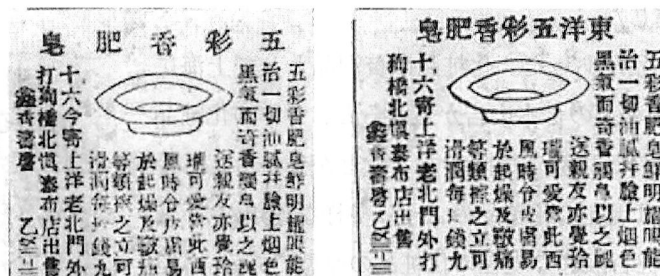 五彩香肥皂
五彩香肥皂鮮明耀眼能
治一切油膩并臉上烟色
黑氣而奇香襲鼻以之
送親友亦覺玲
瓏可愛當此西
風時令皮膚易
於起燥及皸痛
等類擦之立可
滑潤每塊錢九
十六今寄上洋老北門外
打狗橋北泰布店出售
鑫香齋啓 乙
東洋五彩香肥皂
五彩香肥皂鮮明耀眼能
治一切油膩并臉上烟色
黑氣而奇香襲鼻以之
送親友亦覺玲
瓏可愛當此西
風時令皮膚易
於起燥及皸痛
等類擦之立可
滑潤每塊錢九
十六寄上洋老北門外打
狗橋北泰布店出售
鑫香齋啓 乙